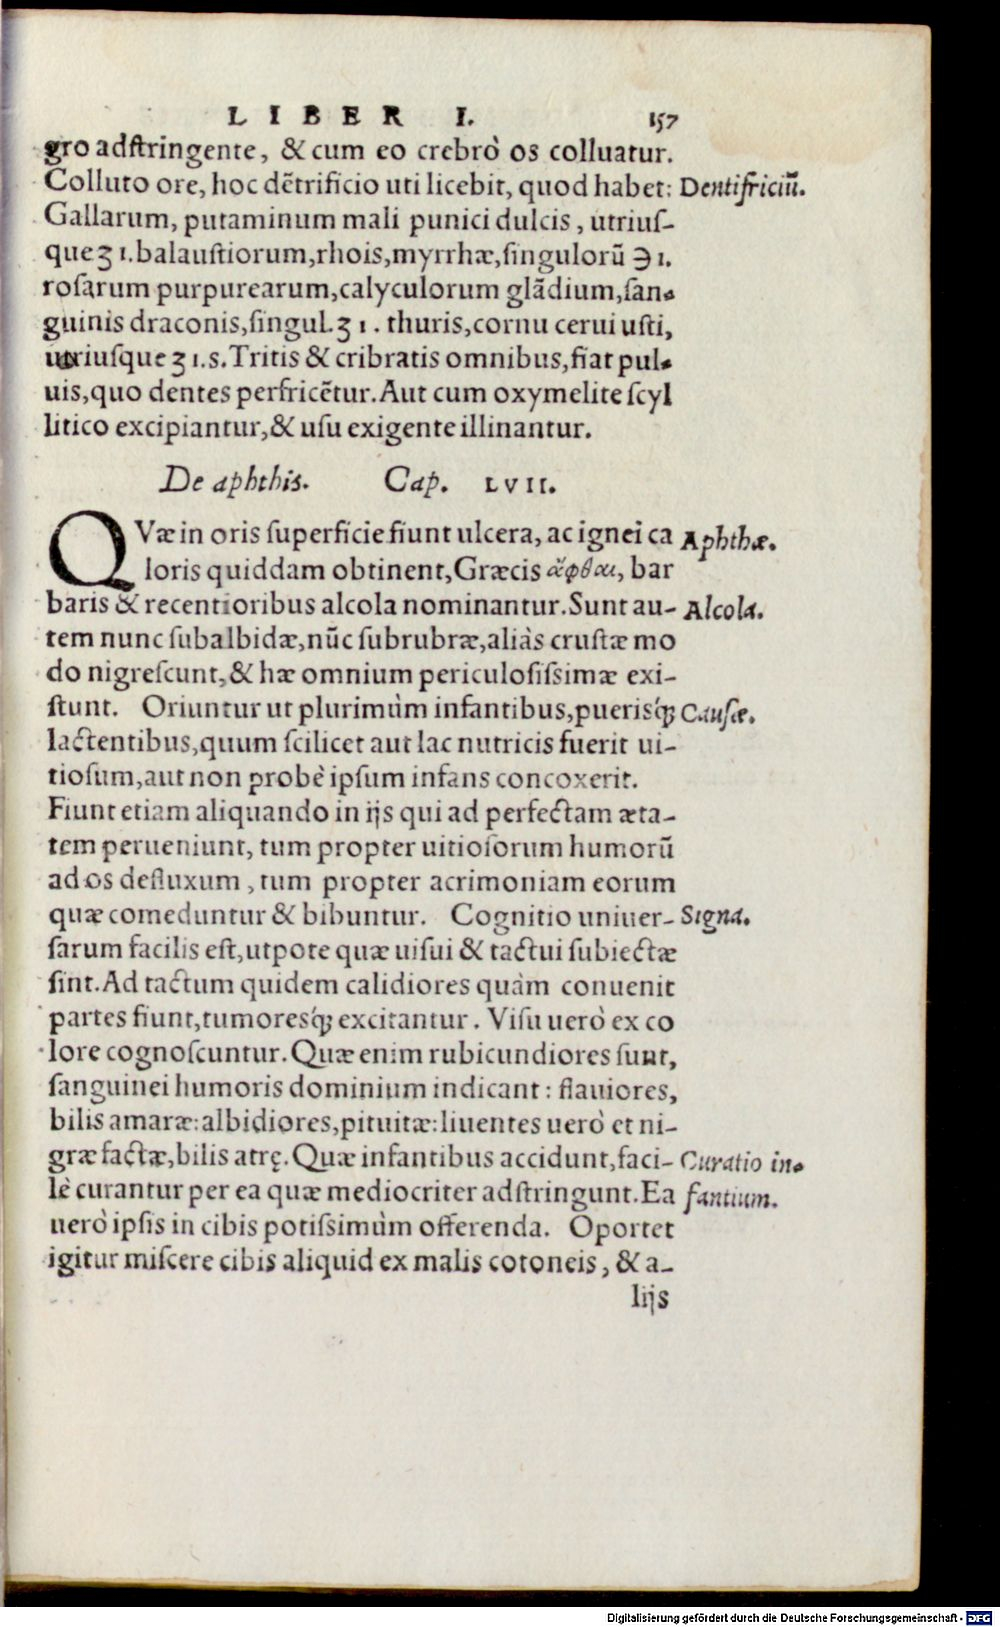 LIBER I. 157
gro adſtringente, & cum eo crebrò os colluatur.
Colluto ore, hoc dẽtrificio uti licebit, quod habet: Dentifriciũ.
Gallarum, putaminum mali punici dulcis, utriuſ-
que ʒ 1. balauſtiorum, rhois, myrrhæ, ſingulorũ ℈ 1.
roſarum purpurearum, calyculorum glãdium, ſan-
guinis draconis, ſingul. ʒ 1. thuris, cornu cerui uſti,
utriuſque ʒ 1.s. Tritis & cribratis omnibus, fiat pul-
uis, quo dentes perfricẽtur. Aut cum oxymelite ſcyl
litico excipiantur, & uſu exigente illinantur.
De aphthis. Cap. LVII.
QVæ in oris ſuperficie fiunt ulcera, ac ignei ca Aphthæ.
loris quiddam obtinent, Græcis ἄφθαι, bar
baris & recentioribus alcola nominantur. Sunt au- Alcola.
tem nunc ſubalbidæ, nũc ſubrubræ, aliàs cruſtæ mo
do nigreſcunt, & hæ omnium periculoſiſsimæ exi-
ſtunt. Oriuntur ut plurimùm infantibus, puerisq́ꝫ Cauſæ.
lactentibus, quum ſcilicet aut lac nutricis fuerit ui-
tioſum, aut non probè ipſum infans concoxerit.
Fiunt etiam aliquando in ijs qui ad perfectam æta-
tem perueniunt, tum propter uitioſorum humorũ
ad os defluxum, tum propter acrimoniam eorum
quæ comeduntur & bibuntur. Cognitio uniuer- Signa.
ſarum facilis eſt, utpote quæ uiſui & tactui ſubiectæ
ſint. Ad tactum quidem calidiores quàm conuenit
partes fiunt, tumoresq́ꝫ excitantur. Viſu uerò ex co
lore cognoſcuntur. Quæ enim rubicundiores ſunt,
ſanguinei humoris dominium indicant: flauiores,
bilis amaræ: albidiores, pituitæ: liuentes uerò et ni-
græ factæ, bilis atrę. Quæ infantibus accidunt, faci- Curatio in-
lè curantur per ea quæ mediocriter adſtringunt. Ea fantium.
uerò ipſis in cibis potiſsimùm offerenda. Oportet
igitur miſcere cibis aliquid ex malis cotoneis, & a-
lijs
Digitalisierung gefördert durch die Deutsche Forschungsgemeinschaft - DFG